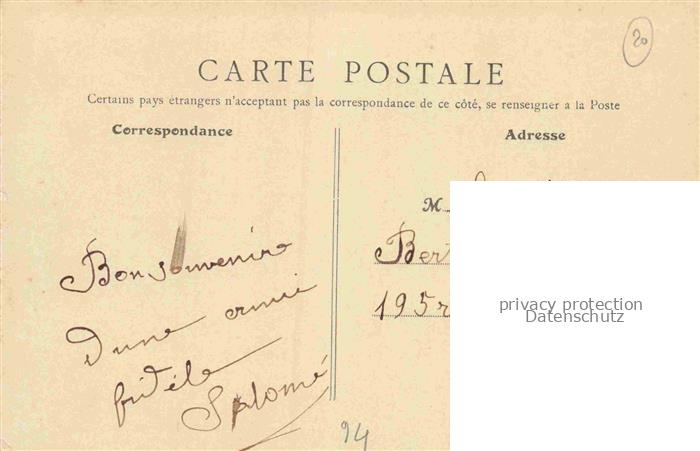 20
CARTE POSTALE
Certains pays étrangers n'acceptant pas la correspondance de ce côté, se renseigner a la Poste
Correspondance
Adresse
M.
Ber
195
Bon souvenir
d'une amie
fidèle
Salomé
94
privacy protection
Datenschutz